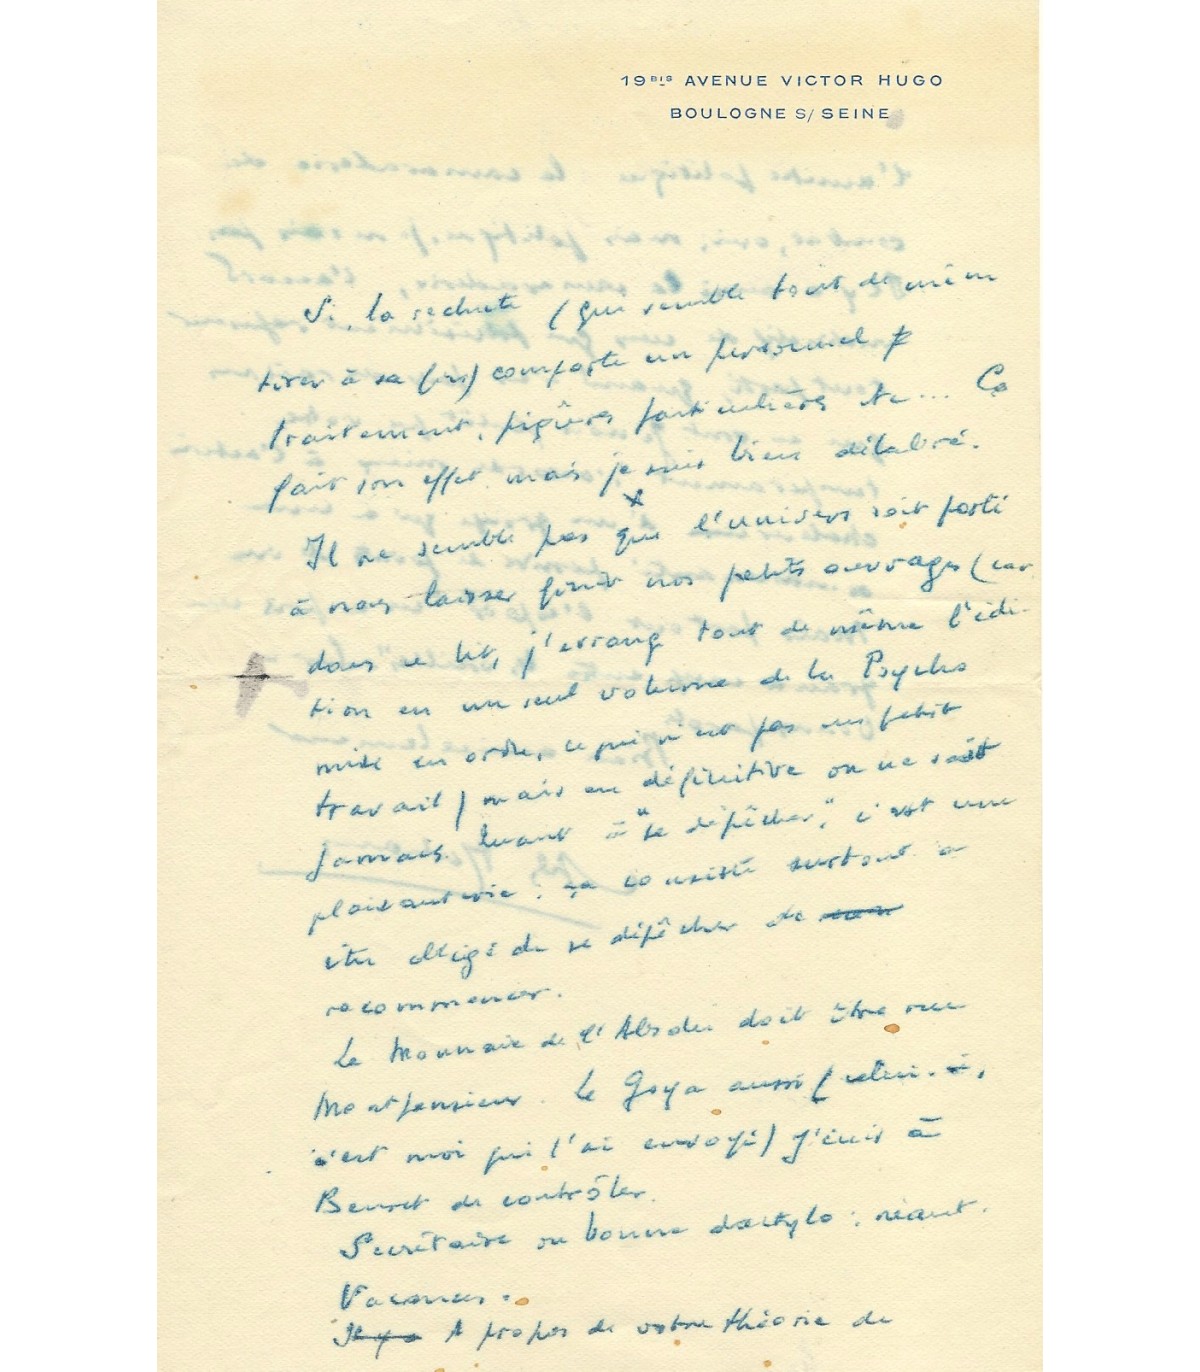 19BIS AVENUE VICTOR HUGO
BOULOGNE S/ SEINE
Si, la rechute (qui semble tout de même
tirer à sa fin) comporte un personnel
traitement, piqûres particulières etc... Ça
fait son effet mais je suis bien délabré.
Il ne semble pas que l'univers soit parti
à nous laisser finir nos petits ouvrages (car
dans ce lit, j'arrange tout de même l'édi-
tion en un seul volume de la Psycho
mise en ordre, ce qui n'est pas un petit
travail) mais en définitive on ne sait
jamais. Quant à "se dépêcher", c'est une
plaisanterie : ça consiste surtout à
être obligé de se dépêcher de
recommencer.
La Monnaie de l'Absolu doit être rue
Montpensier. Le Goya aussi (celui-ci,
c'est moi qui l'ai envoyé) J'écris à
Beuret de contrôler.
Secrétaire ou bonne dactylo : néant.
Vacances.
Il y a A propos de votre théorie de